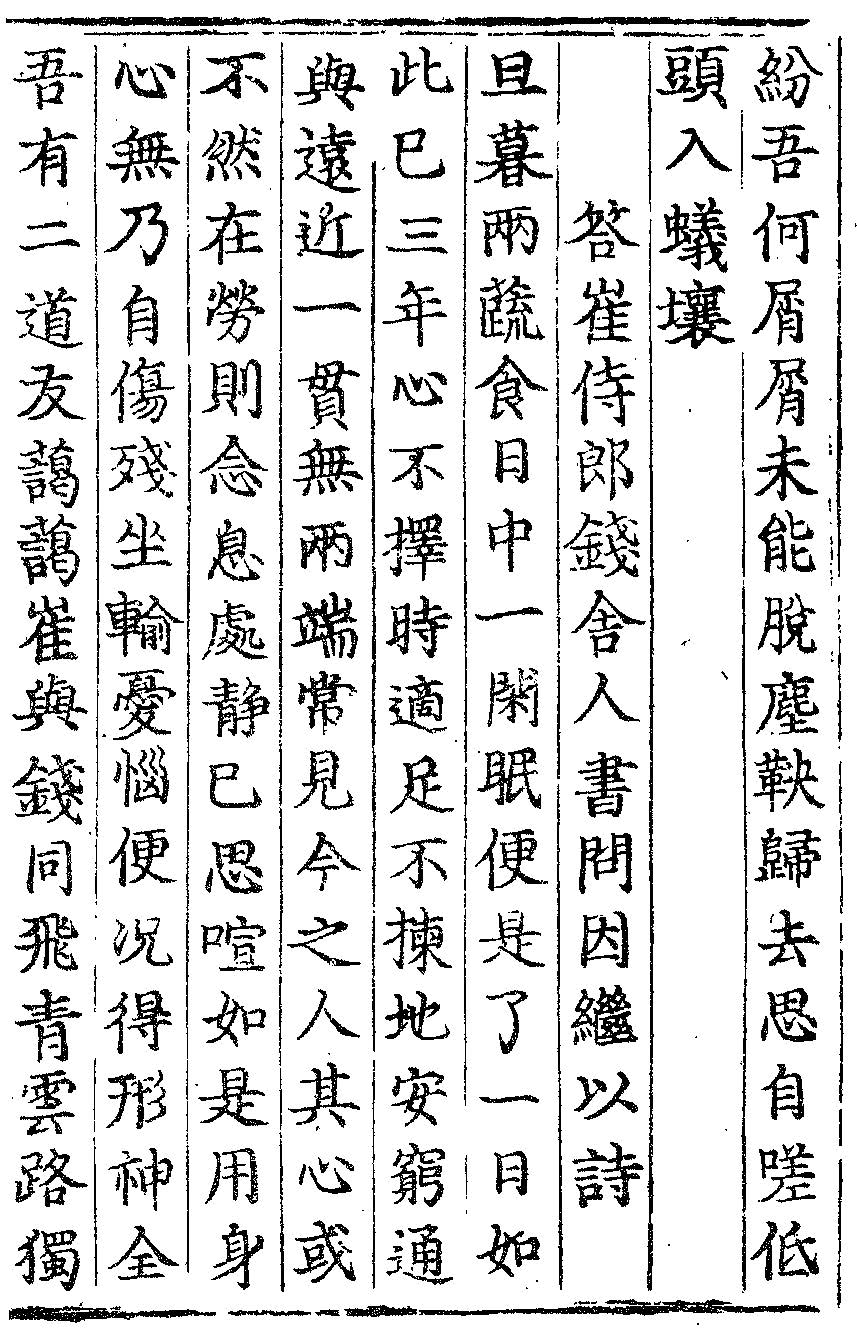 紛吾何屑屑未能脫塵鞅歸去思自嗟低
頭入蟻壤
荅崔侍郎錢舍人書問因繼以詩
旦暮兩蔬食日中一閑眠便是了一日如
此已三年心不擇時適足不揀地安窮通
與遠近一貫無兩端常見今之人其心或
不然在勞則念息處靜已思喧如是用身
心無乃自傷殘坐輸憂惱便况得形神全
吾有二道友藹藹崔與錢同飛青雲路獨